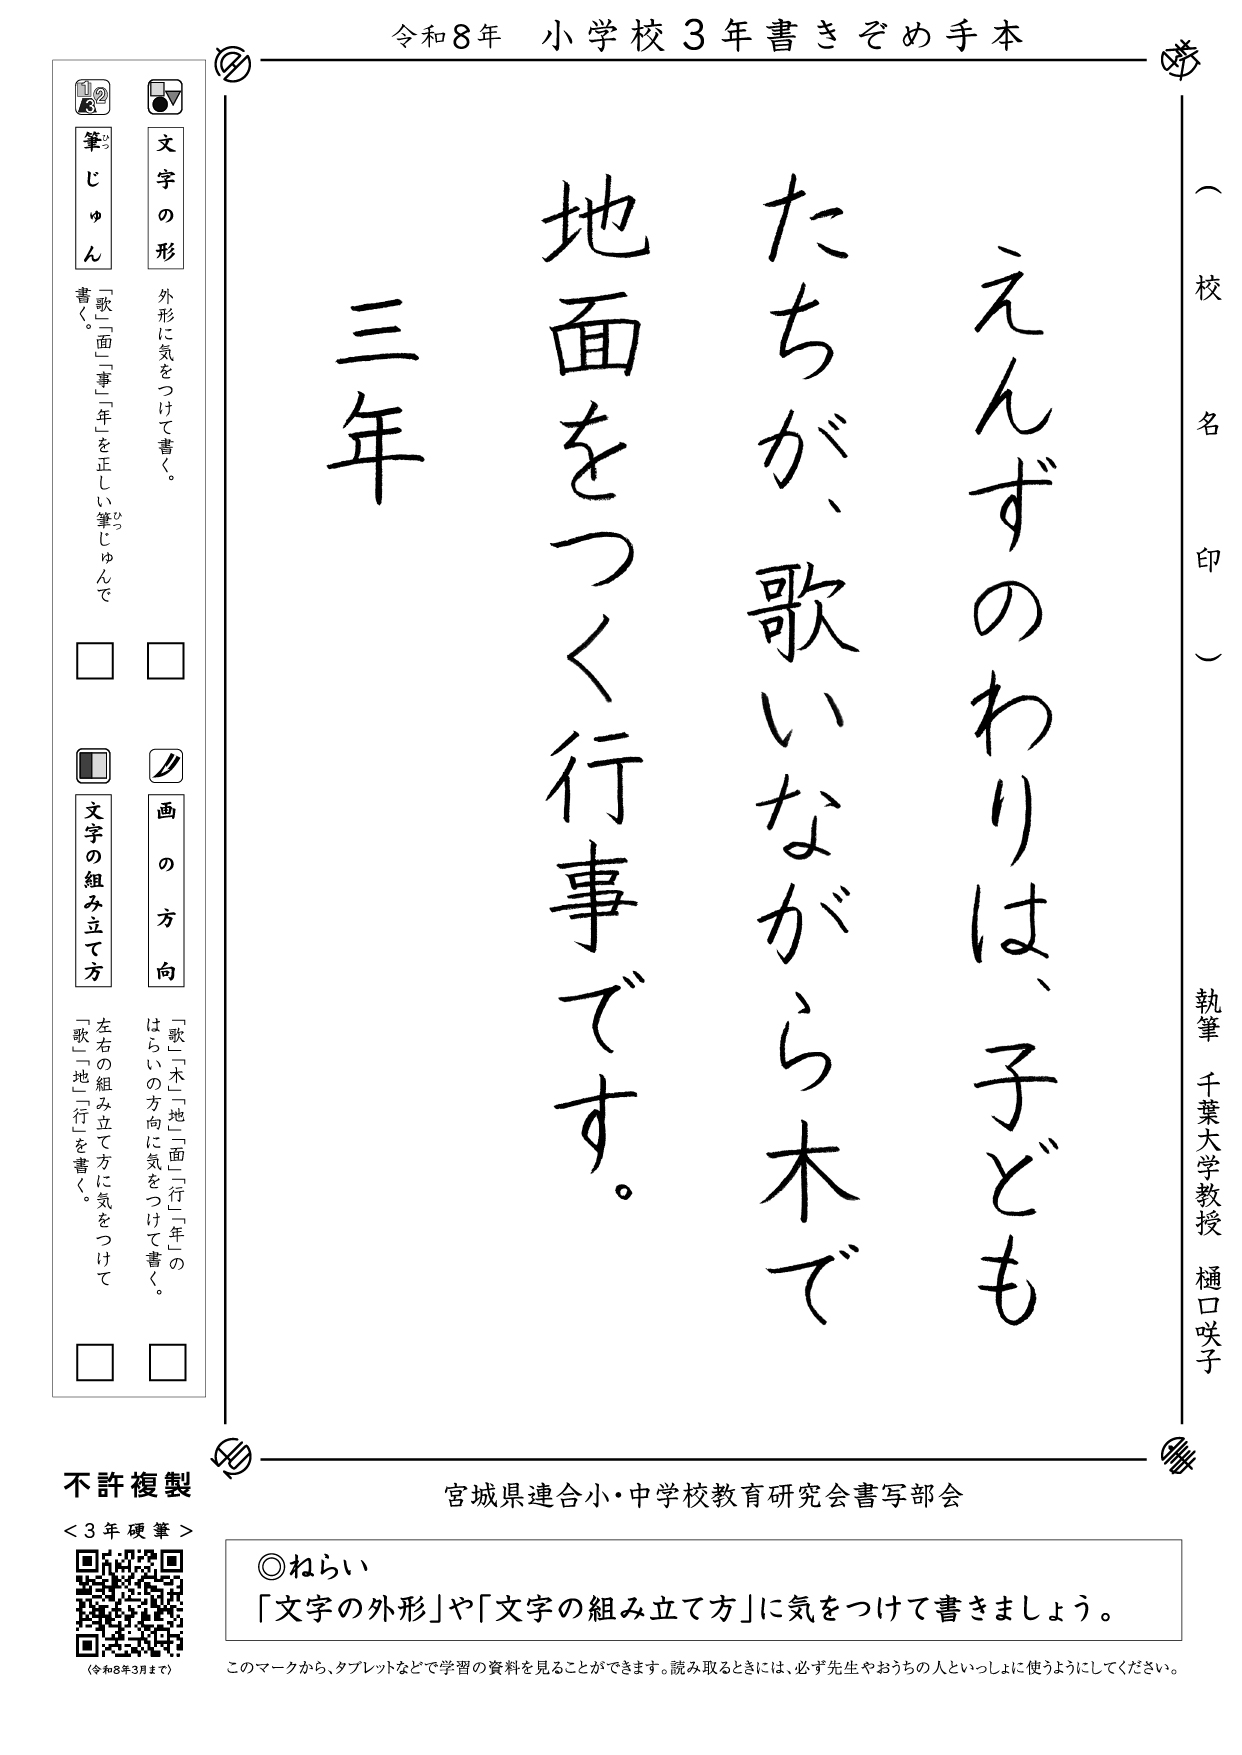 令和8年　小学校３年書きぞめ手本
（校名印）
執筆　千葉大学教授　樋口咲子
えんずのわりは、子ども
たちが、歌いながら木で
地面をつく行事です。
三年
文字の形
外形に気をつけて書く。
筆じゅん
ひつ
「歌」「面」「事」「年」を正しい筆じゅんで
ひつ
書く。
画の方向
「歌」「木」「地」「面」「行」「年」の
はらいの方向に気をつけて書く。
文字の組み立て方
左右の組み立て方に気をつけて
「歌」「地」「行」を書く。
不許複製
＜３年硬筆＞
（令和8年3月まで）
宮城県連合小・中学校教育研究会書写部会
◎ねらい
「文字の外形」や「文字の組み立て方」に気をつけて書きましょう。
このマークから、タブレットなどで学習の資料を見ることができます。読み取るときには、必ず先生やおうちの人といっしょに使うようにしてください。